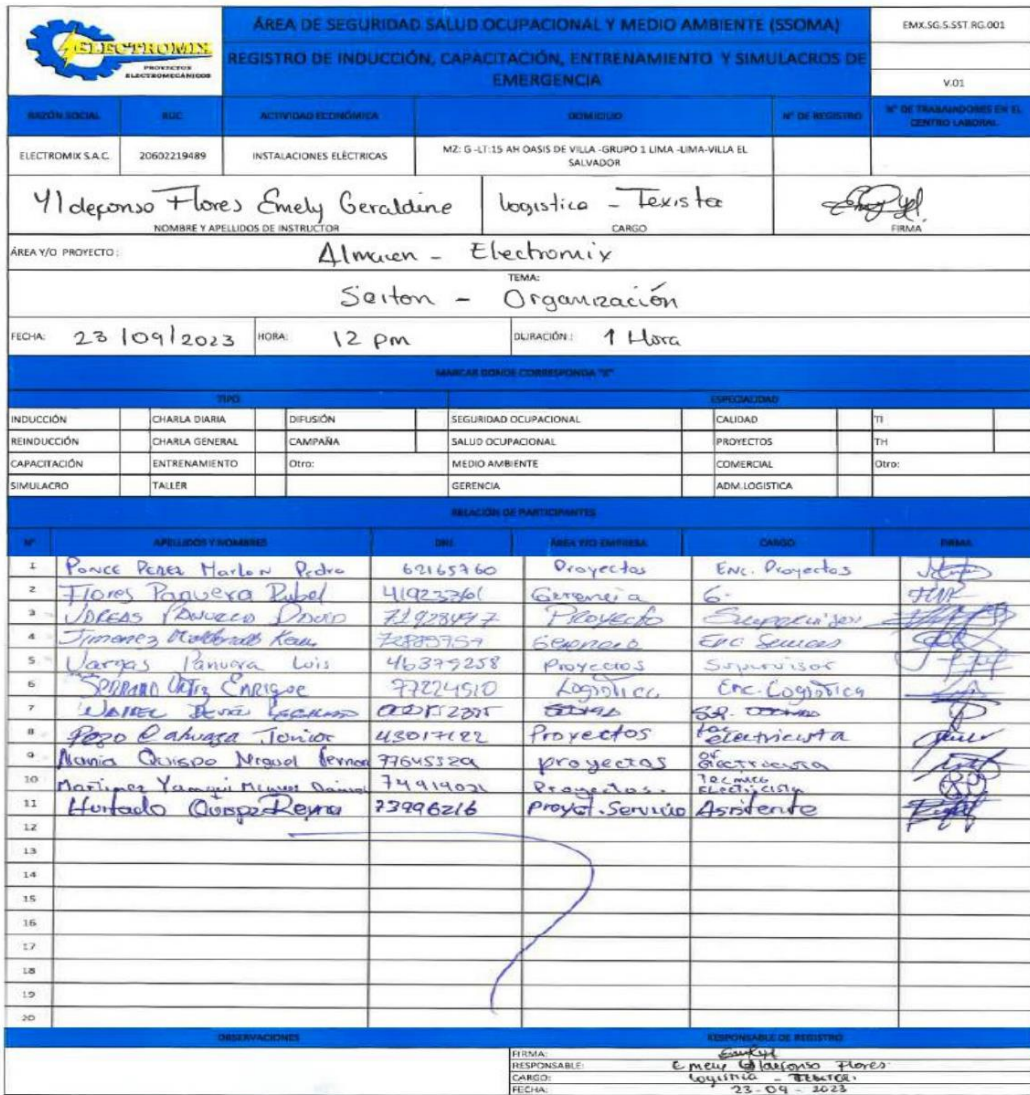 ELECTROMIX
PROYECTOS
ELECTROMECÁNICOS
ÁREA DE SEGURIDAD SALUD OCUPACIONAL Y MEDIO AMBIENTE (SSOMA)
REGISTRO DE INDUCCIÓN, CAPACITACIÓN, ENTRENAMIENTO Y SIMULACROS DE
EMERGENCIA
EMX.SG.S.SST.RG.001
V.01
RAZÓN SOCIAL RUC ACTIVIDAD ECONÓMICA DOMICILIO N° DE REGISTRO N° DE TRABAJADORES EN EL CENTRO LABORAL
ELECTROMIX S.A.C. 20602219489 INSTALACIONES ELÉCTRICAS MZ: G -LT:15 AH OASIS DE VILLA -GRUPO 1 LIMA -LIMA-VILLA EL SALVADOR
Yldefonso Flores Emely Geraldine Logistica - Tesista
NOMBRE Y APELLIDOS DE INSTRUCTOR CARGO FIRMA
ÁREA Y/O PROYECTO: Almacen - Electromix
TEMA:
Seiton - Organización
FECHA: 23/09/2023 HORA: 12 pm DURACIÓN: 1 Hora
MARCAR DONDE CORRESPONDA "X"
TIPO ESPECIALIDAD
INDUCCIÓN CHARLA DIARIA DIFUSIÓN SEGURIDAD OCUPACIONAL CALIDAD TI
REINDUCCIÓN CHARLA GENERAL CAMPAÑA SALUD OCUPACIONAL PROYECTOS TH
CAPACITACIÓN ENTRENAMIENTO Otro: MEDIO AMBIENTE COMERCIAL Otro:
SIMULACRO TALLER GERENCIA ADM.LOGISTICA
RELACIÓN DE PARTICIPANTES
N° APELLIDOS Y NOMBRES DNI ÁREA Y/O EMPRESA CARGO FIRMA
1 PONCE PEREZ Marlon Pedro 62165760 Proyectos Enc. Proyectos
2 Flores Panuera Rubel Gerencia G.
3 VARGAS David 71928497 Proyecto Supervisor
4 Jimenez Enc
5 Vargas Panuera Luis 46379258 Proyectos Supervisor
6 Enrique 77224510 Logistica Enc. Logistica
7
8 Pozo Junior Proyectos electricista
9 Quispe Miguel proyectos
10 Martinez Proyectos. Tecnico Electricista
11 Hurtado Quispe Reyna 73996216 Proyect.Servicio Asistente
12
13
14
15
16
17
18
19
20
OBSERVACIONES RESPONSABLE DE REGISTRO
FIRMA:
RESPONSABLE: Emely Yldefonso Flores
CARGO: Logistica -
FECHA: 23-09-2023